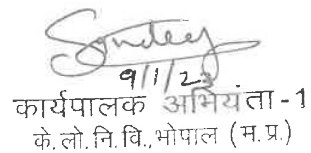 9/1/23
कार्यपालक अभियंता - 1
के.लो.नि.वि.,भोपाल (म.प्र.)